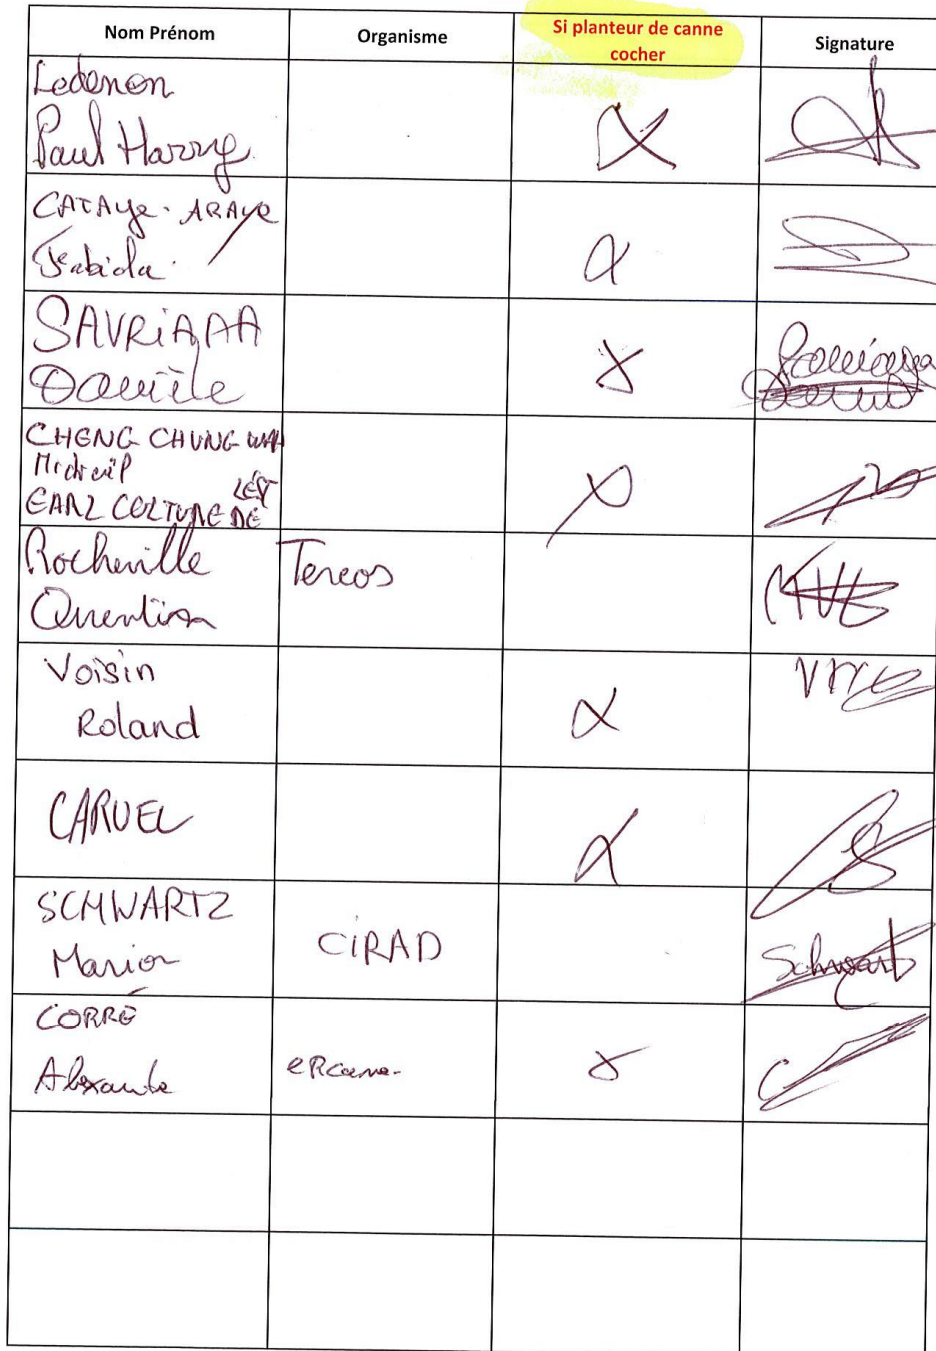 Nom Prénom Organisme Si planteur de canne cocher Signature
Ledenon
Paul Harry X
CATAYE-ARAYE
Fabiola X
SAVRIAMA
Danièle X
CHENG CHUNG WAH
Mickaël
EARL CULTURE DE L'EST X
Rocheville Tereos
Quentin
Voisin
Roland X
CARVEL X
SCHWARTZ
Marion CIRAD Schwartz
CORRÉ
Alexandre eRcane. X